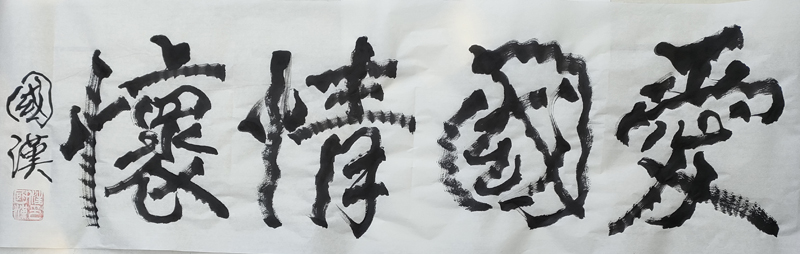 愛國情懷
國漢